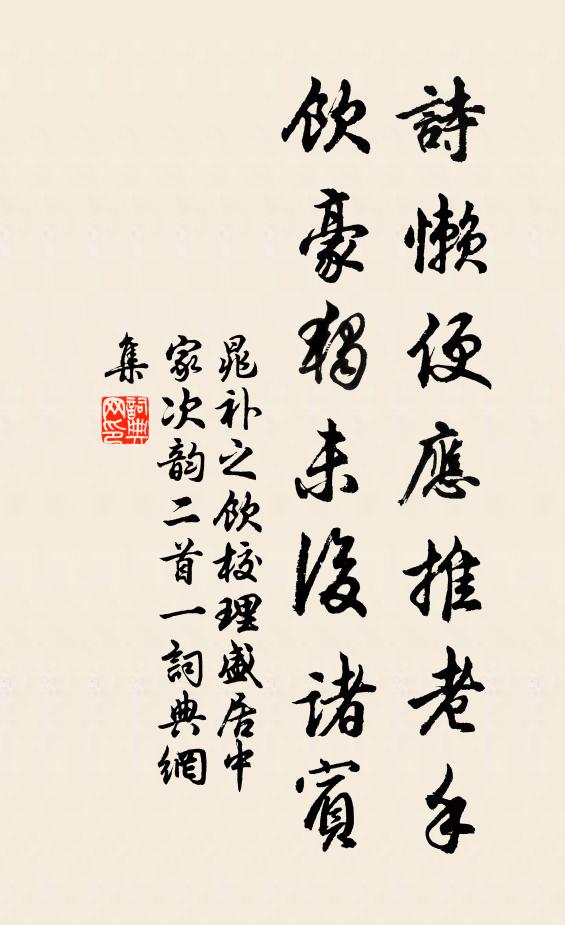 詩懶便應推老手
飲豪獨未後諸賓
晁补之飲校理盛居中
家次韵二首一詞典網
集
詞典网印